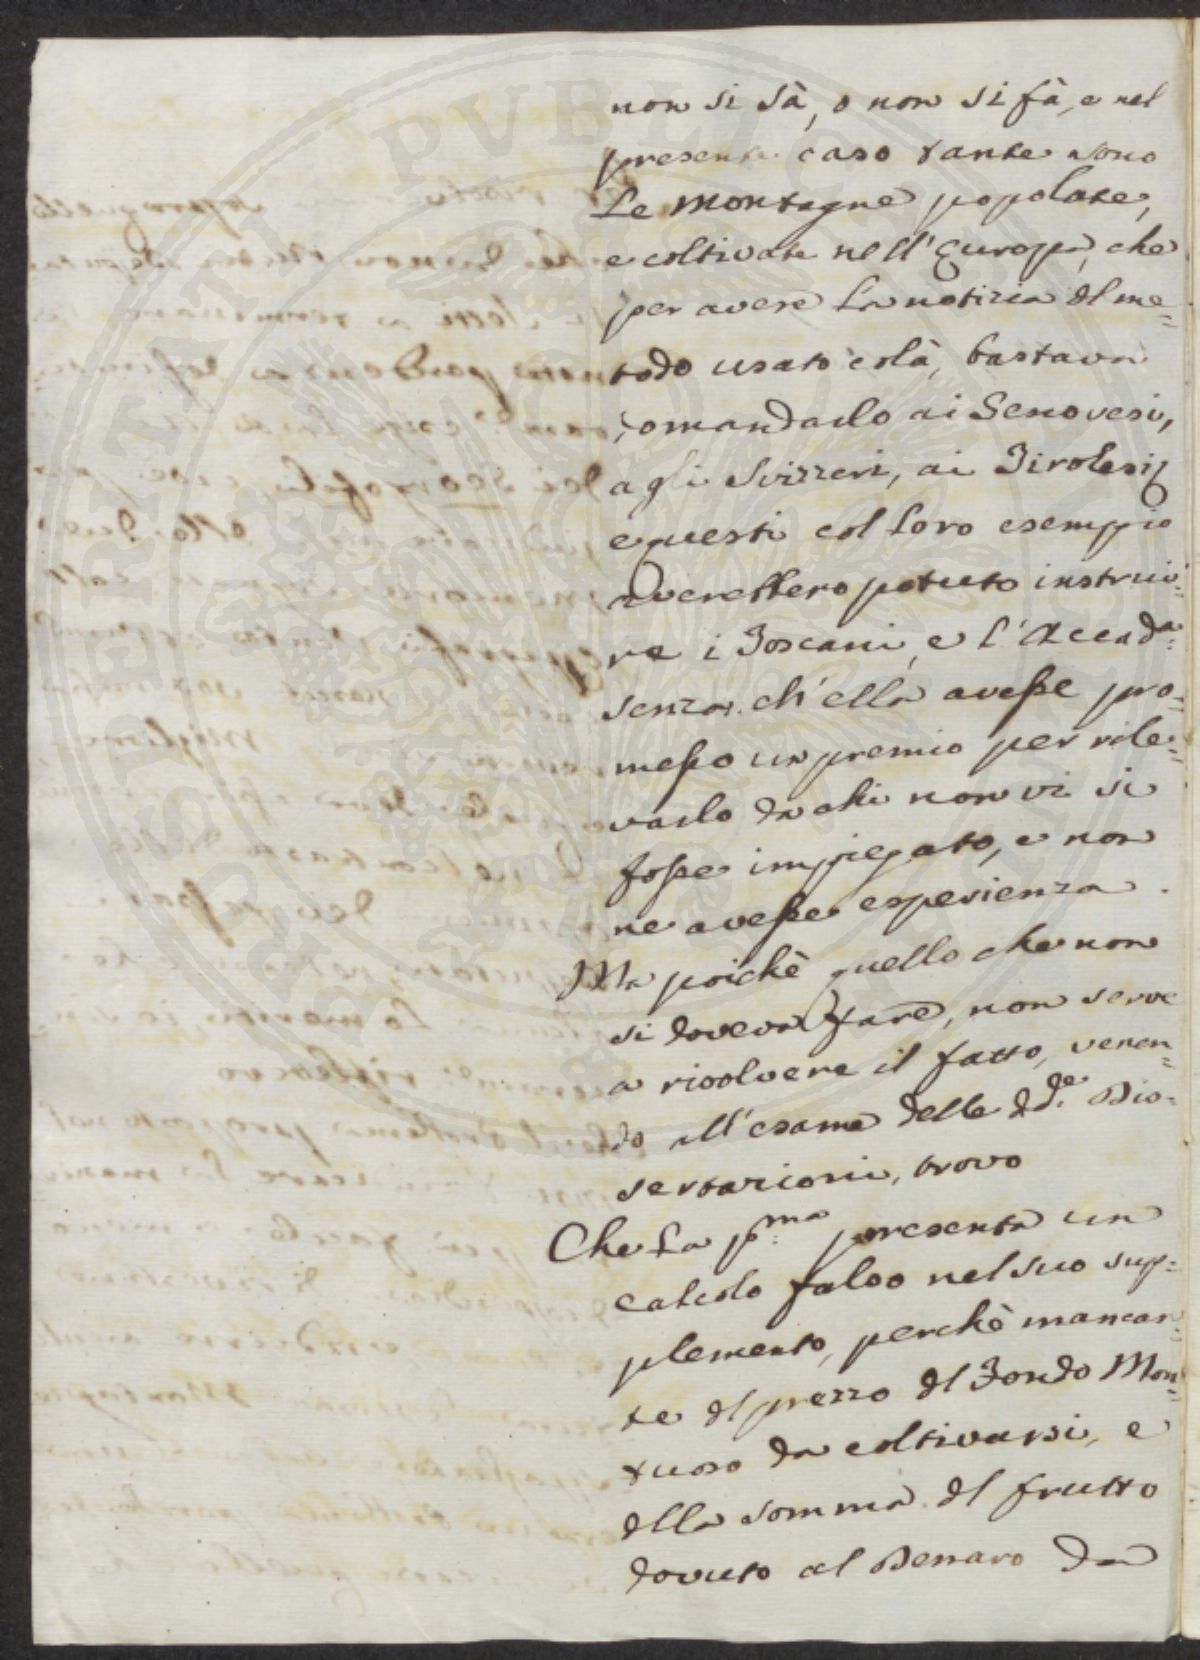 non si sà, o non si fà, e nel
presente caso tante sono
Le Montagne popolate,
e coltivate nell'Europa, che
per avere La notizia del me=
todo usato colà, bastava
domandarlo ai Genovesi,
agli Svizzeri, ai Tirolesi;
e questi col Loro esempio
averebbero potuto instrui=
re i Toscani, e l'Accad.a
senza ch'ella avesse pro=
messo un premio per rile=
varlo da chi non vi si
fosse impiegato, e non
ne avesse esperienza.
Ma poichè quello che non
si doveva fare, non serve
a risolvere il fatto, venen=
do all'esame delle d.de Dis=
sertazioni, trovo
Che La p.ma presenta un
calcolo falso nel suo sup=
plemento, perchè mancan=
te del prezzo del Fondo Mon=
tuoso da coltivarsi, e
della somma del frutto
dovuto al Denaro da
PROSPERITATI PVBLICAE